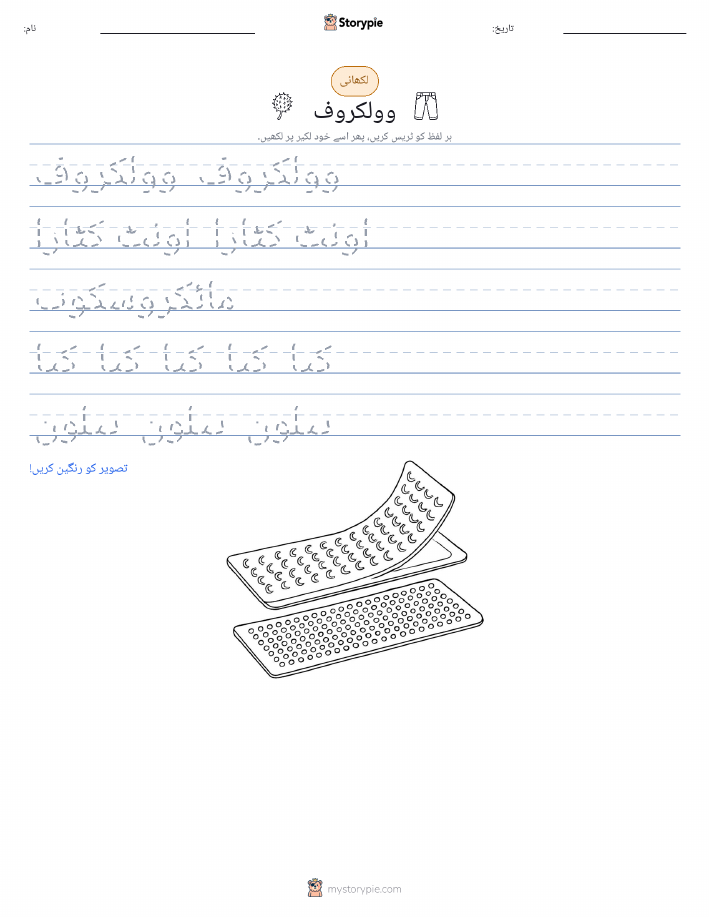 نام:
Storypie
تاریخ:
لکھائی
وولکروف
ہر لفظ کو ٹریس کریں، پھر اسے خود لکیر پر لکھیں۔
وولکروف وولکروف
اونٹ کٹارا اونٹ کٹارا
مائکروسکوپ
کتا کتا کتا کتا کتا
پتلون پتلون پتلون
تصویر کو رنگین کریں!
mystorypie.com